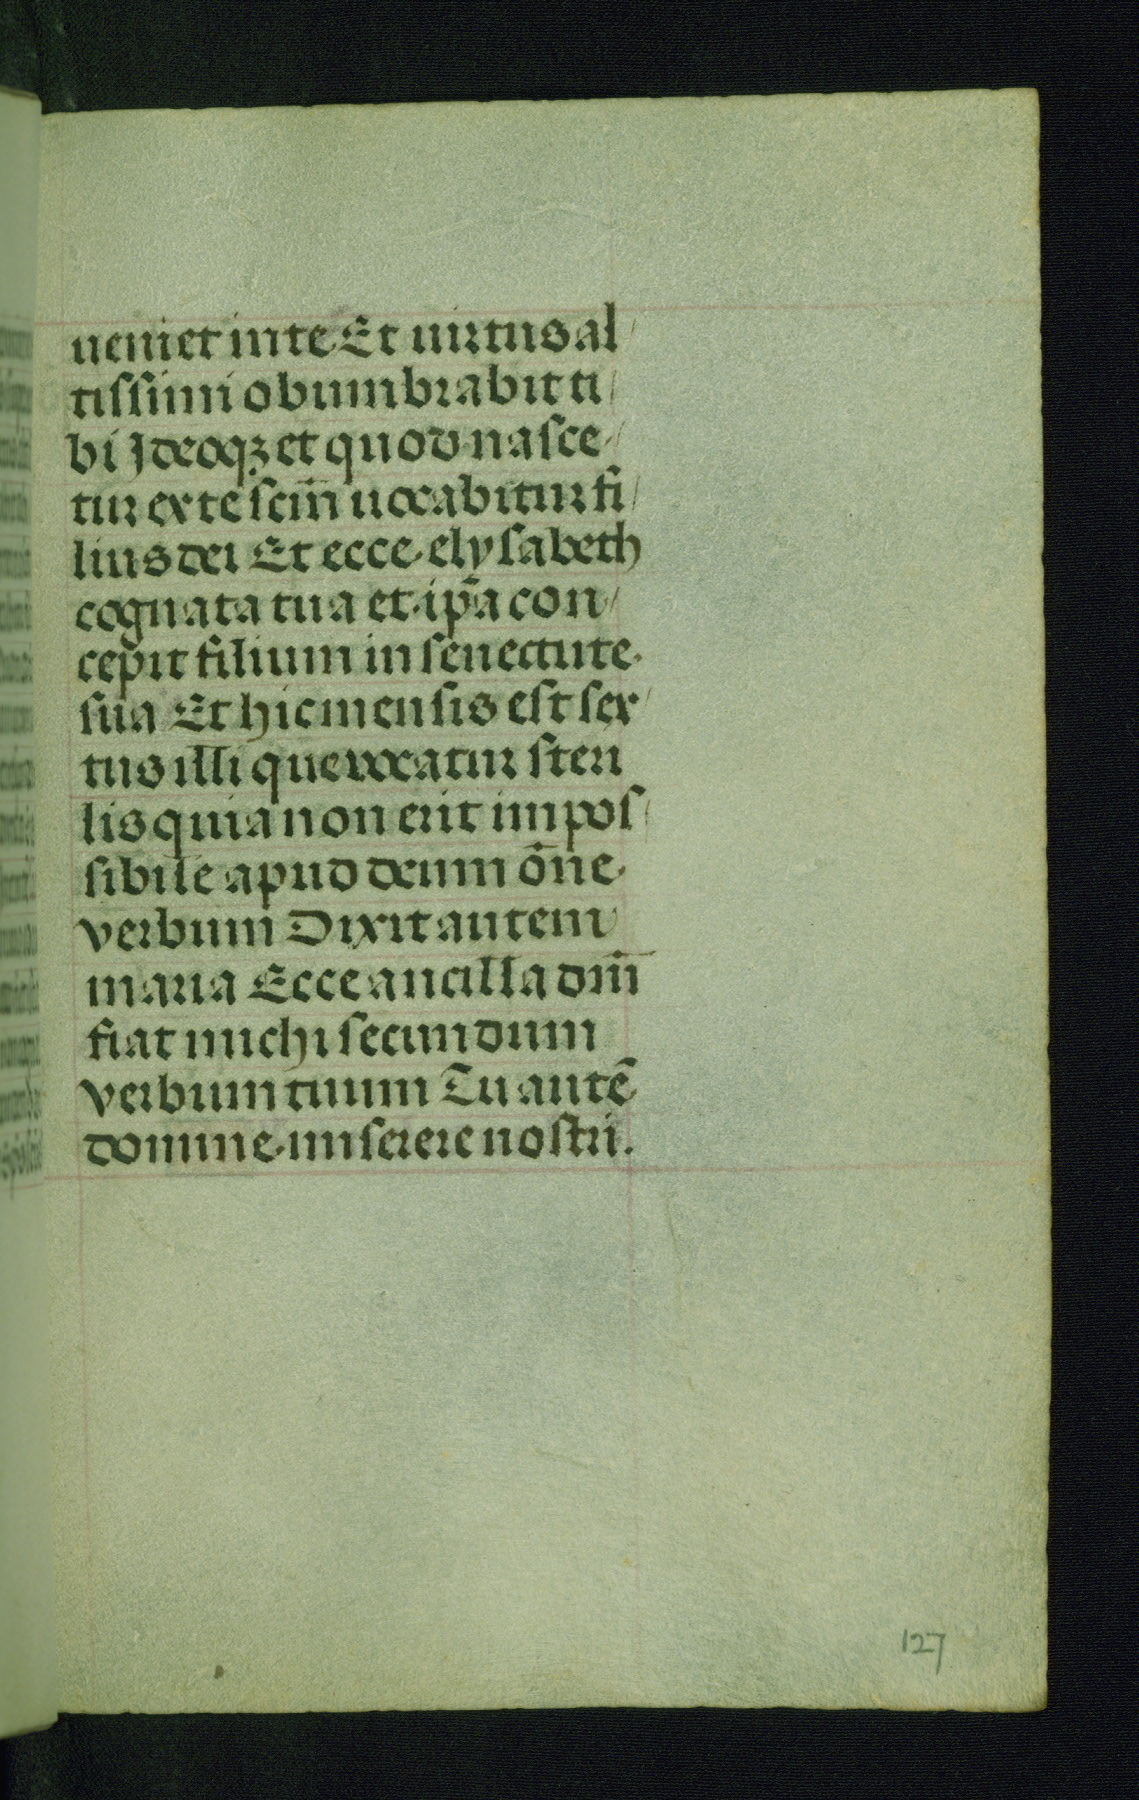 ueniet in te Et uirtus al/
tissimi obumbrabit ti/
bi Ideoqꝫ et quod nasce/
tur ex te scm̄ uocabitur fi/
lius dei Et ecce elysabeth
cognata tua et ip̄a con/
cepit filium in senectute
sua Et hic mensis est sex/
tus illi que uocatur steri
lis quia non erit impos/
sibile apud deum om̄e
verbum Dixit autem
maria Ecce ancilla dm̄
fiat michi secundum
verbum tuum Tu autē
domine miserere nostri.
127